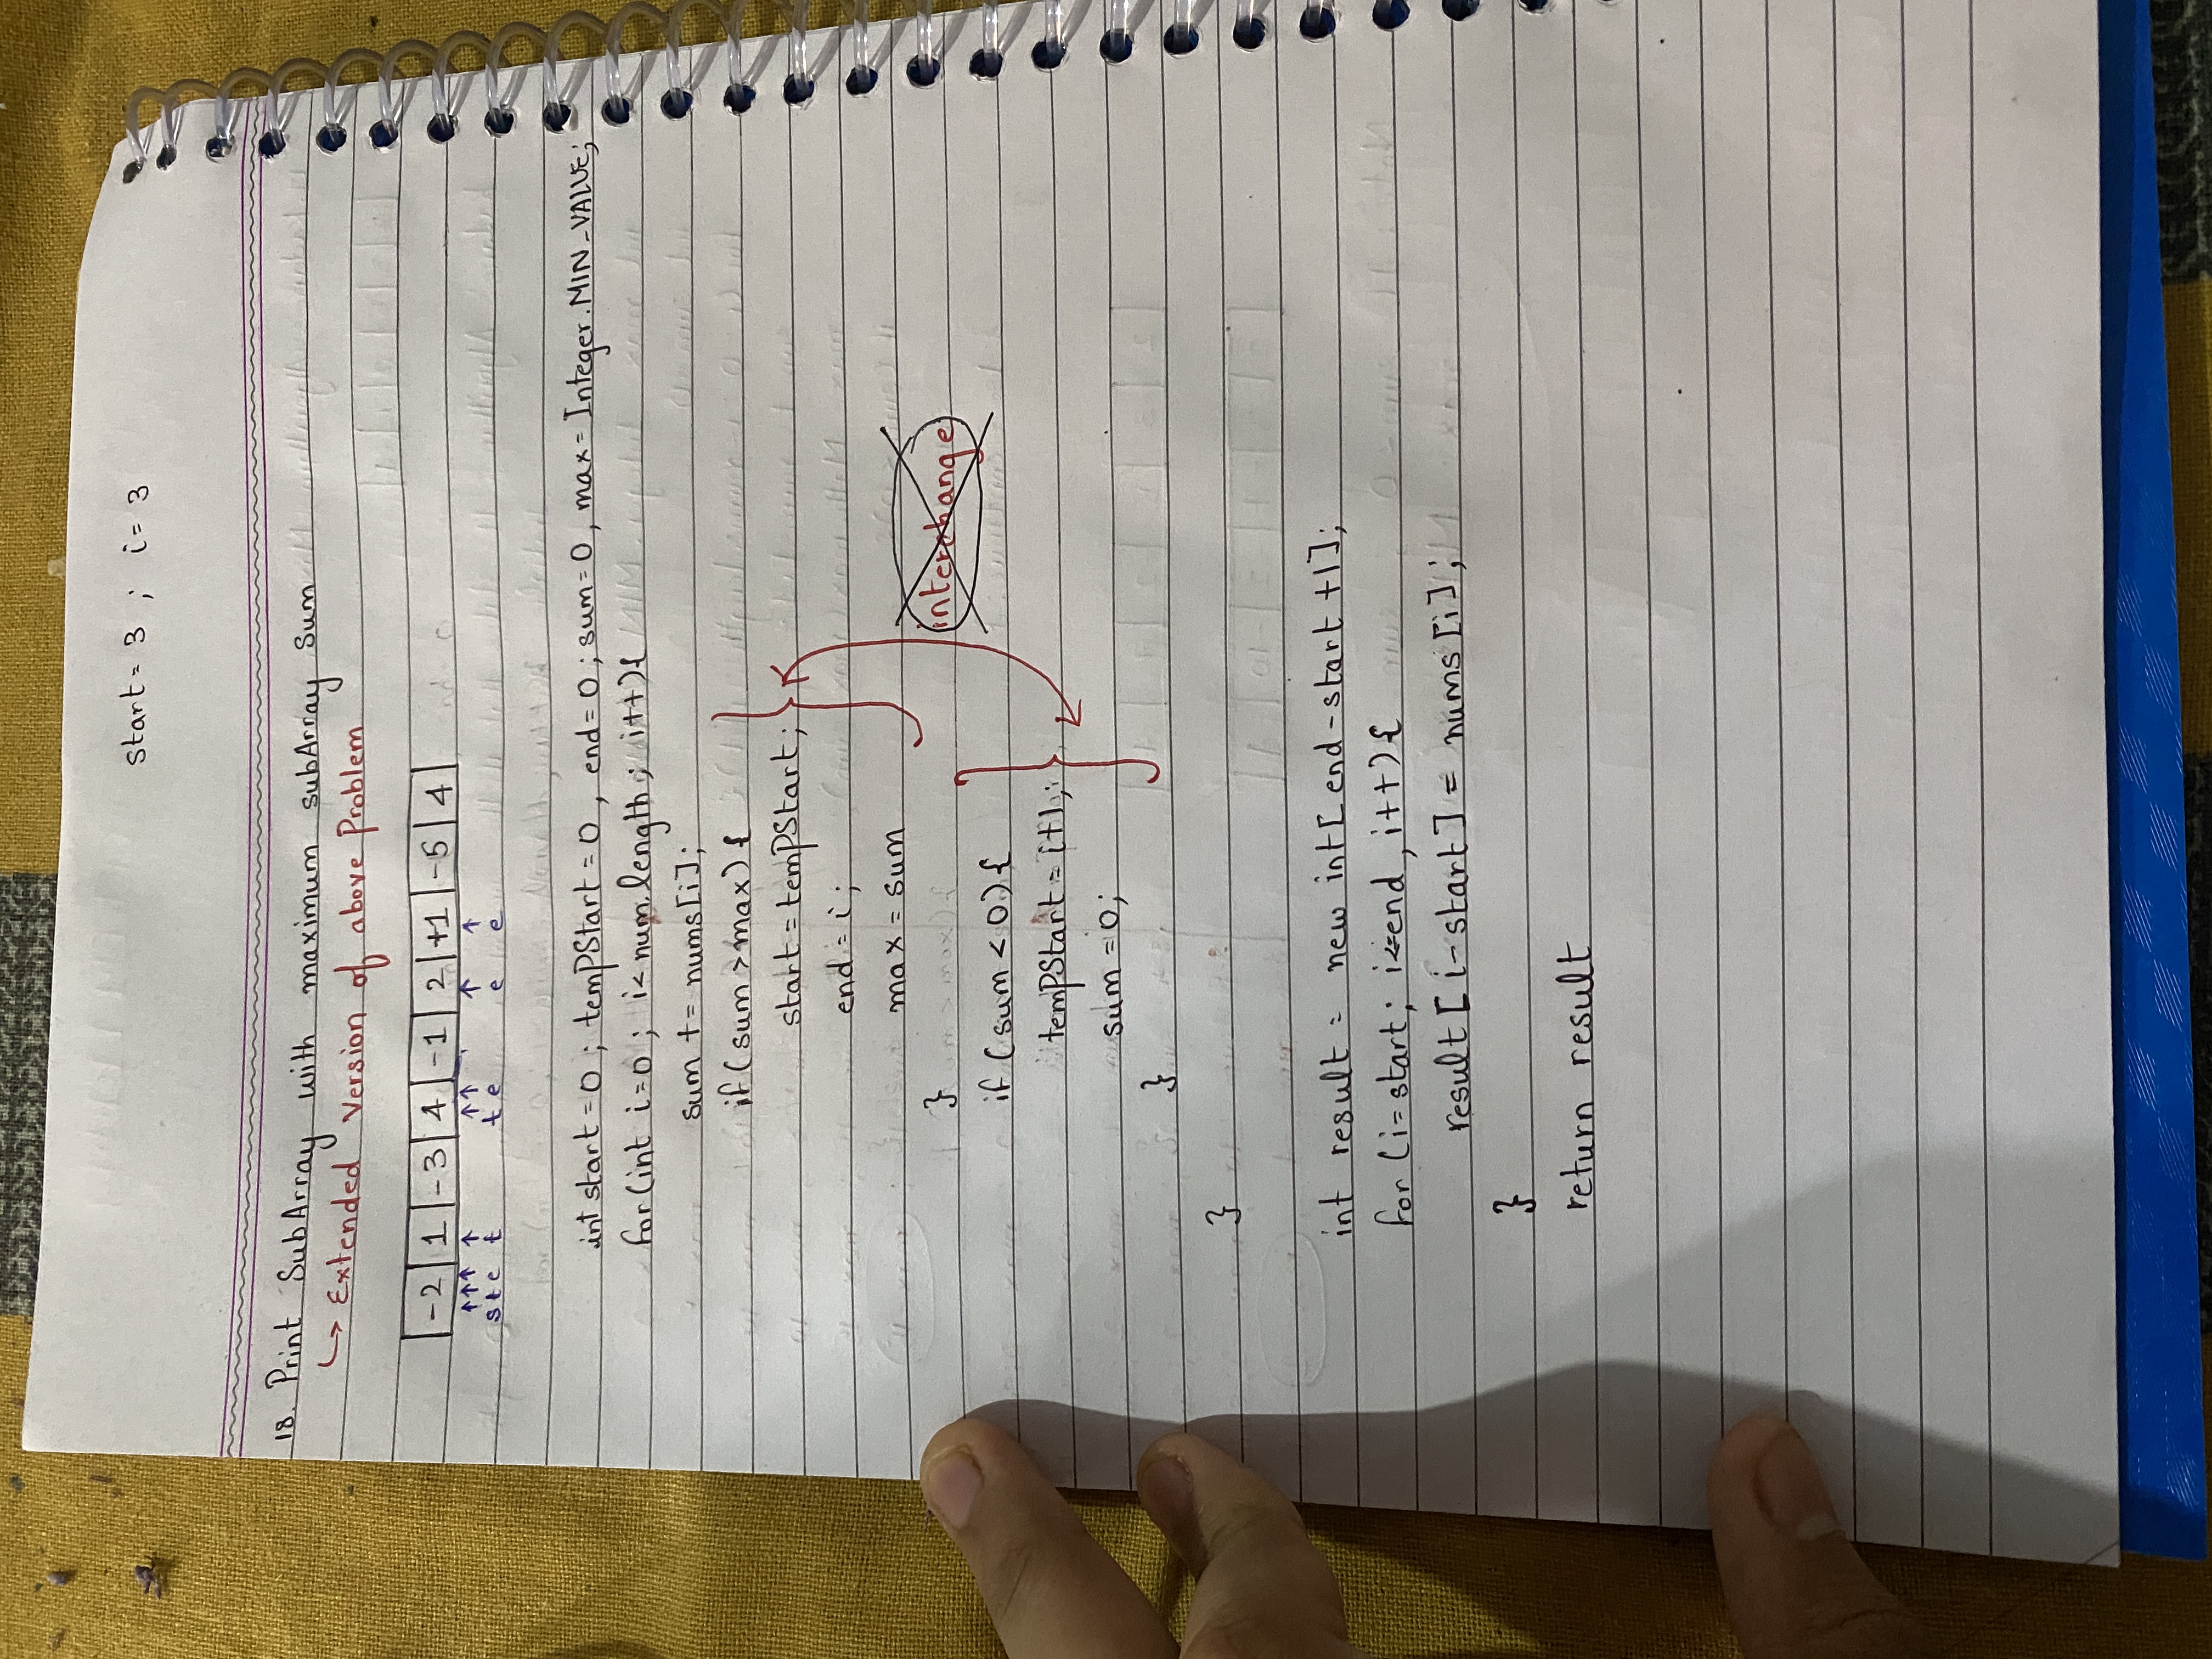 start = 3 ; i = 3
18. Print SubArray with maximum subArray Sum
↳ Extended version of above Problem
-2 | 1 | -3 | 4 | -1 | 2 | +1 | -5 | 4
↑↑↑ ↑ ↑↑ ↑ ↑
s t e t t e e e
int start = 0 ; tempStart = 0 , end = 0 ; sum = 0 , max = Integer.MIN_VALUE;
for (int i = 0 ; i < num.length ; i++){
sum += nums[i];
if (sum > max) {
start = tempStart;
end = i ;
max = sum
}
interchange
if (sum < 0) {
tempStart = i+1;
sum = 0;
}
}
int result = new int[ end - start + 1];
for (i = start; i <= end , i++) {
result [ i - start ] = nums [i] ;
}
return result